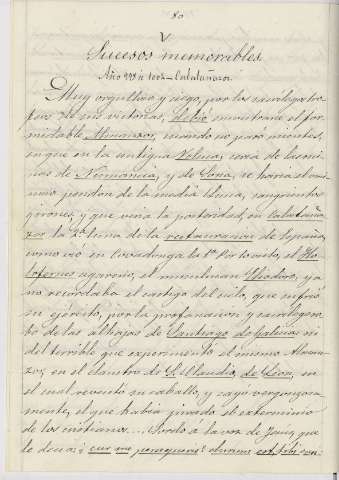 80
V
Sucesos memorables.
Año 998 á 1002 – Calatañazor.
Muy orgulloso y ciego, por los sacrílegos tro-
feos de sus victorias, debió encontrarse el for-
midable Almanzor, cuando no paró mientes,
en que en la antigua Voluce, cerca de las rui-
nas de Numancia, y de Soria, se haría el om-
nimo pendon de la media luna, sangrientos
girones; y que veria la posteridad, en Calataña-
zor la 2ª luna de la restauracion de España,
como vió en Covadonga la 1ª. Por lo visto, el Ho-
lofernes agareno, el musulman Eliodoro, ya
no recordaba el castigo del cielo, que sufrió
su ejército, por la profanacion y sacrilego ro-
bo de las alhajas de Santiago de Galicia ni
del terrible que esperimentó el mismo Alman-
zor, en el claustro de S. Claudio, de Leon, en
el cual reventó su caballo, y cayó vergonzosa-
mente, el que habia jurado el esterminio
de los cristianos... ¡Sordo á la voz de Jesús, que
le decia: ¿cur me persequeris? durum est tibi con-